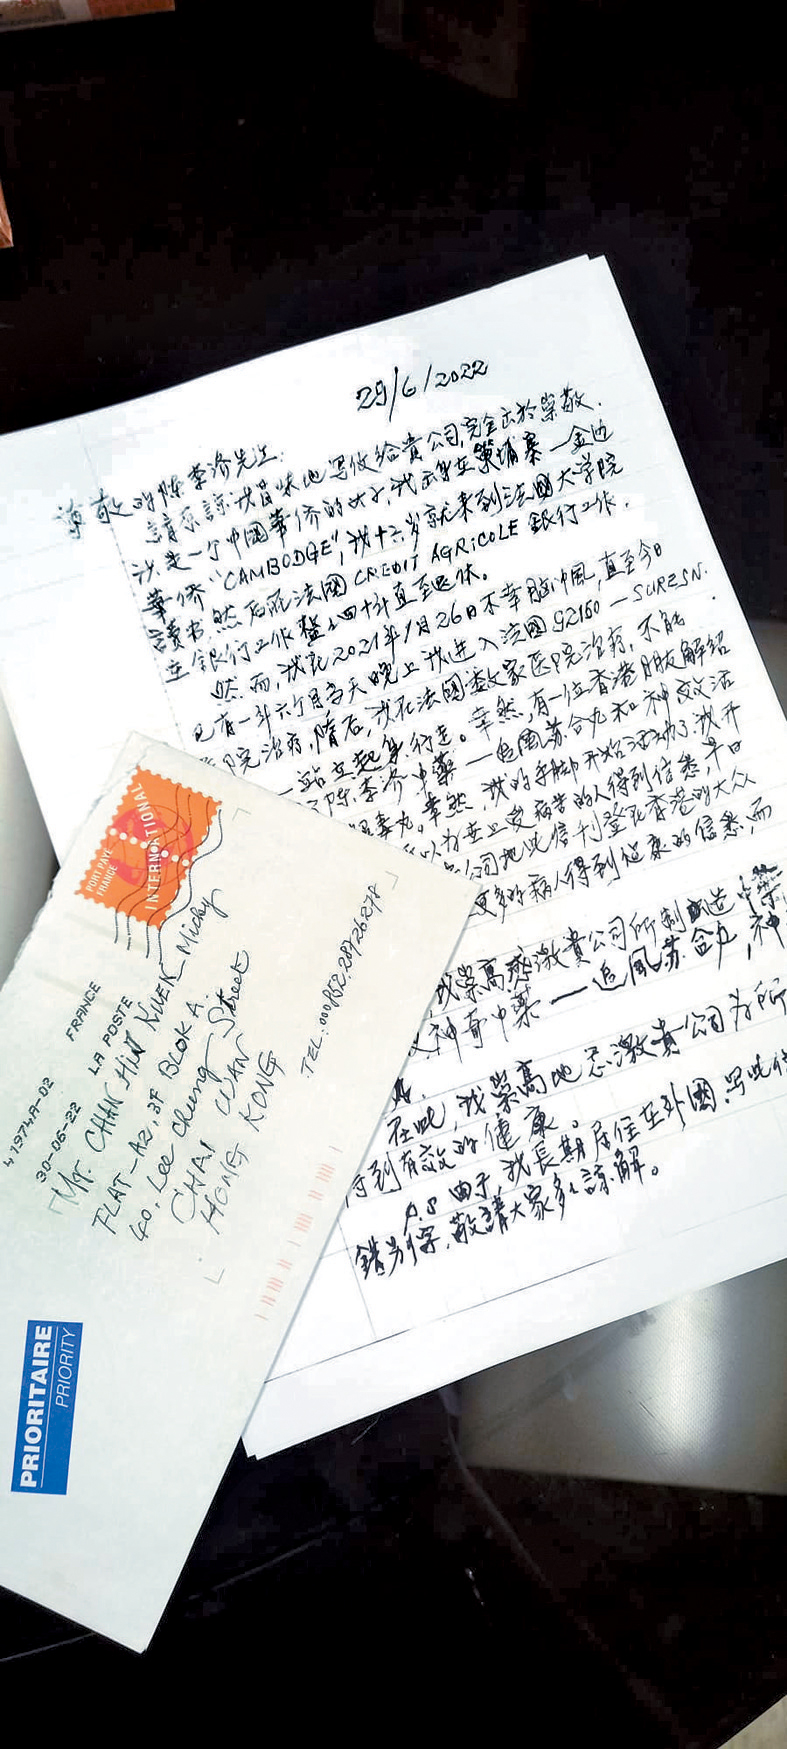 29/6/2022
尊敬的陈李济先生:
請原諒我冒昧地写信給貴公司,完全出於崇敬.
我是一个中國華侨的女子,我出生在柬埔寨—金边
華侨"CAMBODGE",我十六岁就来到法國大学院
讀书.然后在法國CREDIT AGRICOLE銀行工作.
在銀行工作整整四十年直至退休。
然而,我在2021年1月26日不幸脑冲風,直至今日
已有一年六个月.当天晚上我进入法國92150—SURESN.
医院治疗,隋后,我在法國数家医院治疗,不能
站立起身行走。幸然,有一位香港朋友解绍
陈李济中藥—追風苏合丸和神效活
丸,幸然,我的手脚开始活动了.我开
以为在上受病苦的人得到信悉,早日
公司把此信刊登在香港的大众
更多的病人得到健康的信悉,而
我崇高感激貴公司所制造中藥
神奇中藥—追風苏合丸,神
丸.
在此,我崇高地感激貴公司为所
得到有效的健康。
P.S 由于,我長期居住在外國.写此信
錯别字,敬請大家多多諒解。
PORT PAYÉ
FRANCE
INTERNATIONAL
41974A-02
FRANCE
30-06-22
LA POSTE
Mr. CHAN HIN KUEK_Micky
FLAT_A2, 3F BLOK A.
40, Lee Chung Street
CHAI WAN
HONG KONG
TEL: 000852.28926278
PRIORITAIRE
PRIORITY